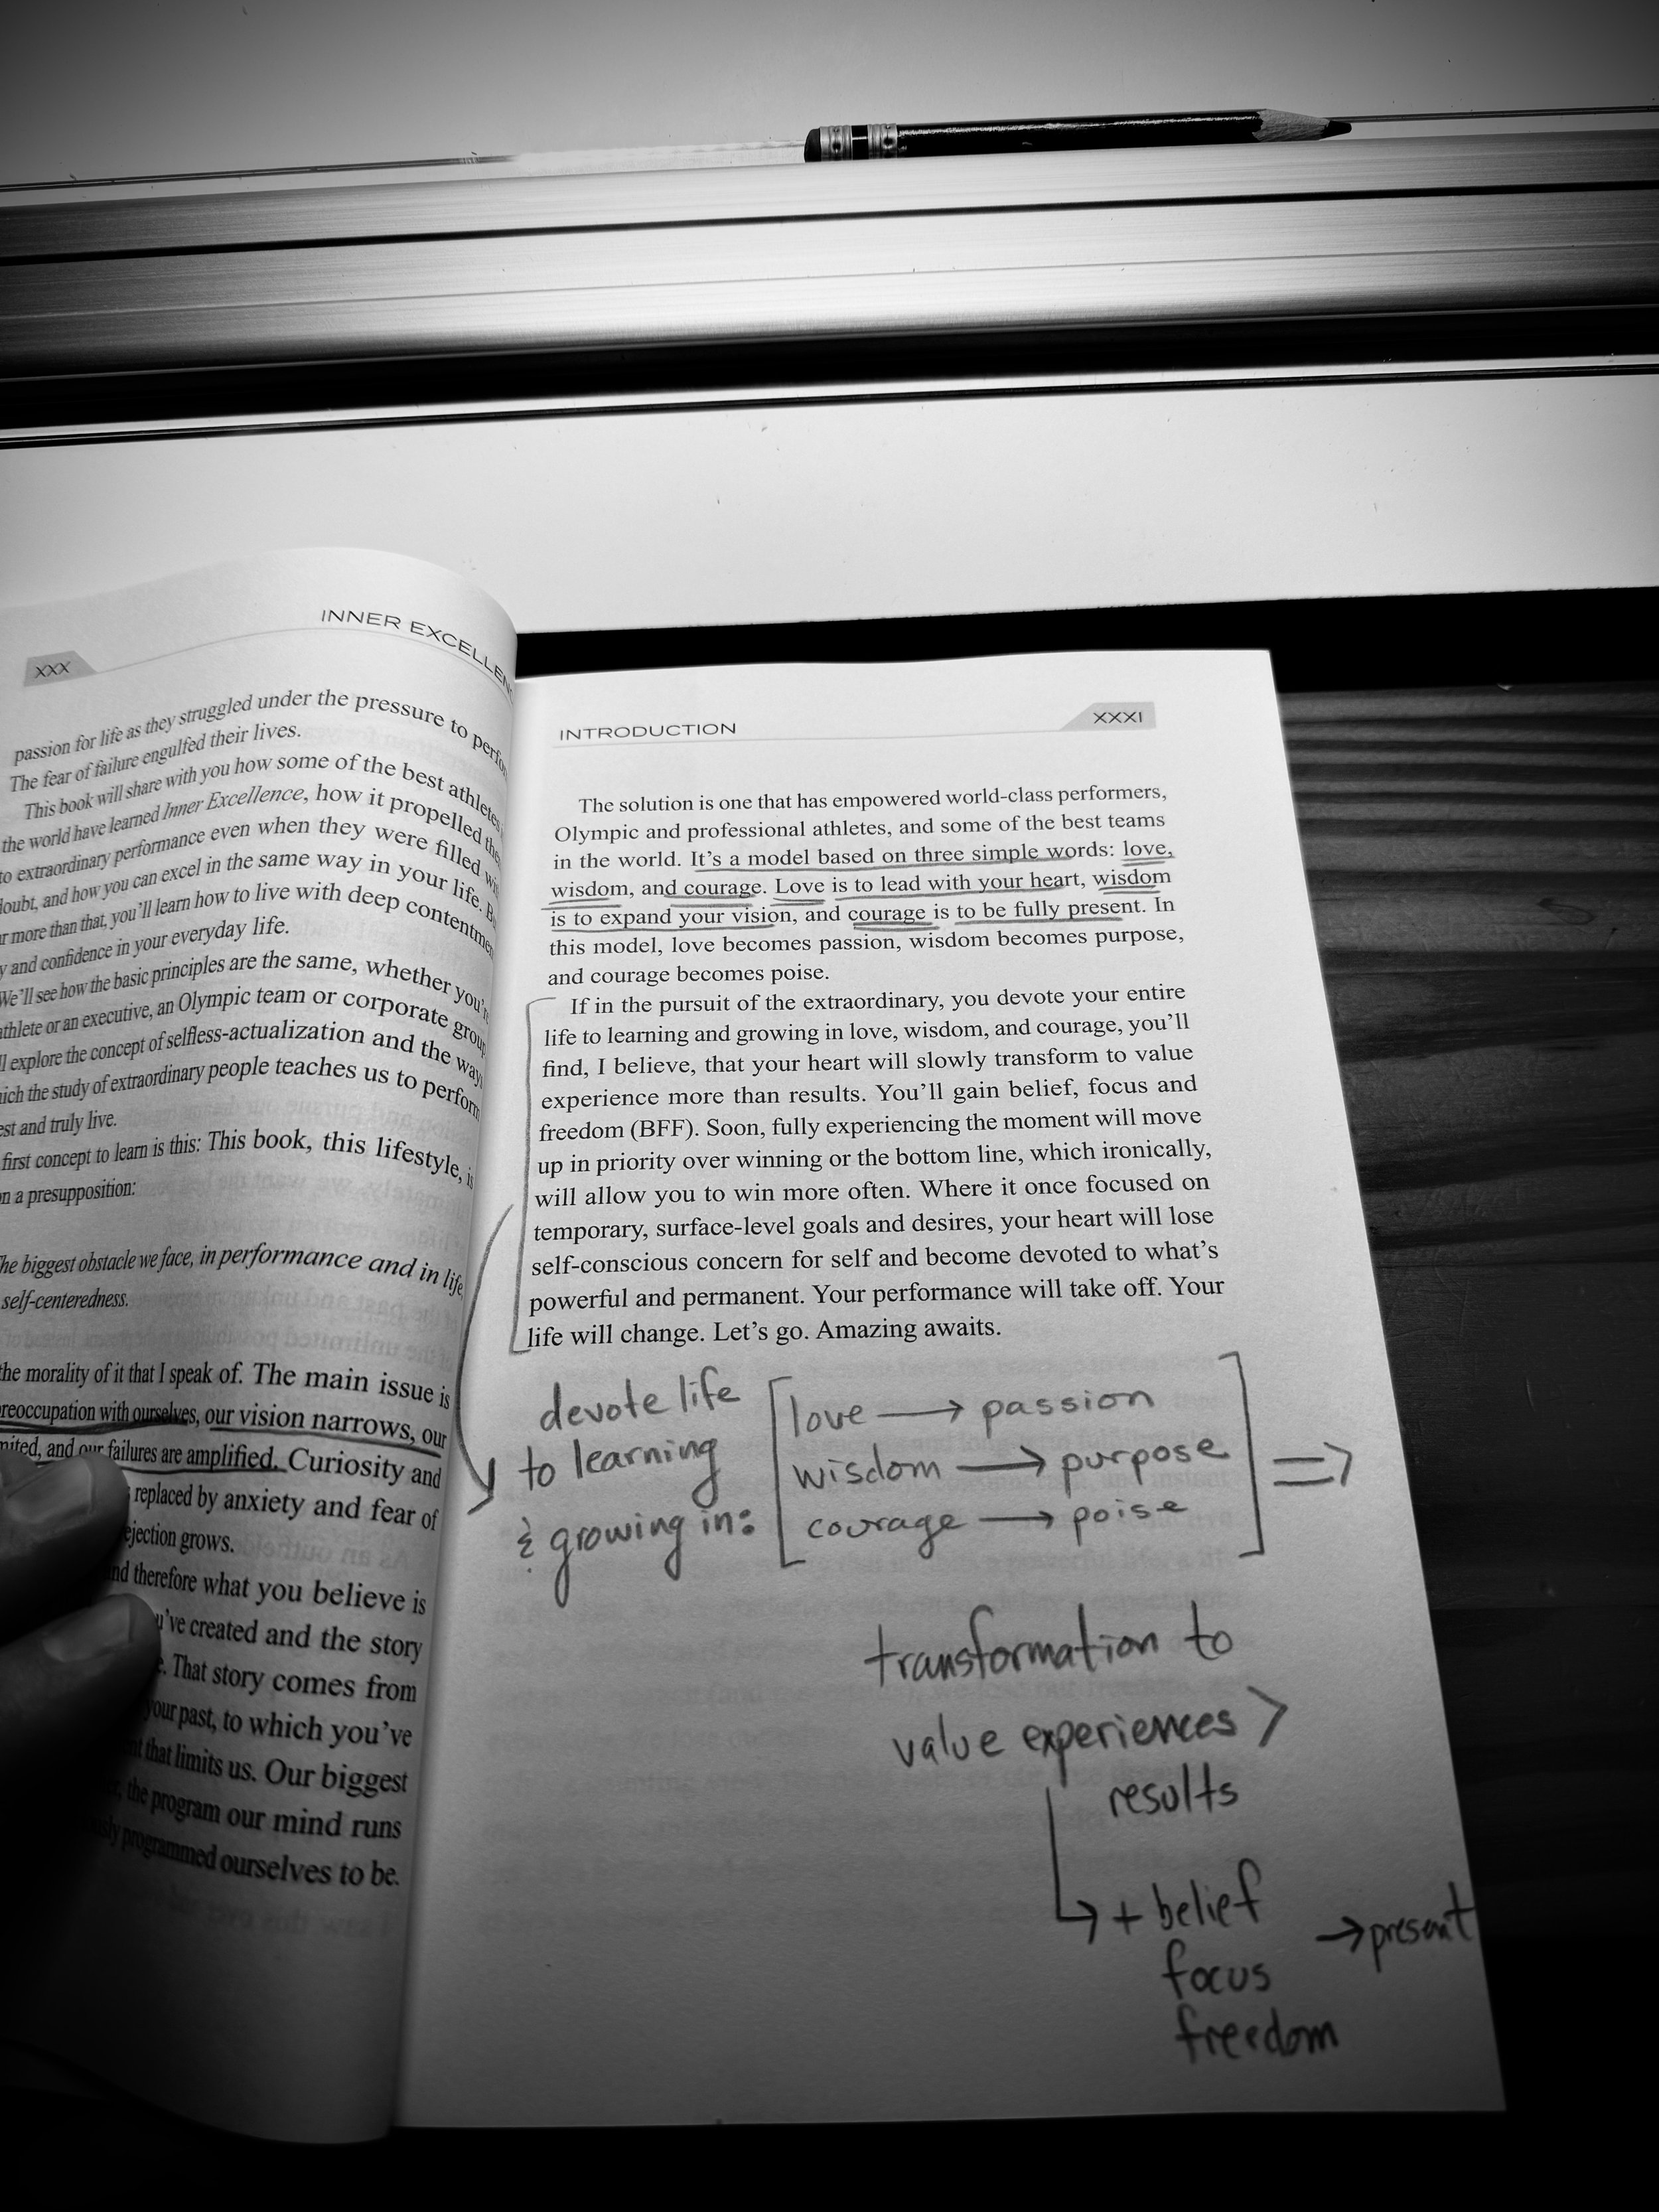 XXX
INNER EXCELLEN
passion for life as they struggled under the pressure to perfo
The fear of failure engulfed their lives.
This book will share with you how some of the best athletes
the world have learned Inner Excellence, how it propelled the
to extraordinary performance even when they were filled wi
doubt, and how you can excel in the same way in your life. B
ar more than that, you'll learn how to live with deep contentme
y and confidence in your everyday life.
We'll see how the basic principles are the same, whether you'r
athlete or an executive, an Olympic team or corporate group
ll explore the concept of selfless-actualization and the way
hich the study of extraordinary people teaches us to perform
est and truly live.
first concept to learn is this: This book, this lifestyle, is
n a presupposition:
The biggest obstacle we face, in performance and in life
self-centeredness.
the morality of it that I speak of. The main issue is
reoccupation with ourselves, our vision narrows, our
mited, and our failures are amplified. Curiosity and
replaced by anxiety and fear of
ejection grows.
nd therefore what you believe is
u've created and the story
e. That story comes from
your past, to which you've
nt that limits us. Our biggest
the program our mind runs
sly programmed ourselves to be.
INTRODUCTION
XXXI
The solution is one that has empowered world-class performers,
Olympic and professional athletes, and some of the best teams
in the world. It's a model based on three simple words: love,
wisdom, and courage. Love is to lead with your heart, wisdom
is to expand your vision, and courage is to be fully present. In
this model, love becomes passion, wisdom becomes purpose,
and courage becomes poise.
If in the pursuit of the extraordinary, you devote your entire
life to learning and growing in love, wisdom, and courage, you'll
find, I believe, that your heart will slowly transform to value
experience more than results. You'll gain belief, focus and
freedom (BFF). Soon, fully experiencing the moment will move
up in priority over winning or the bottom line, which ironically,
will allow you to win more often. Where it once focused on
temporary, surface-level goals and desires, your heart will lose
self-conscious concern for self and become devoted to what's
powerful and permanent. Your performance will take off. Your
life will change. Let's go. Amazing awaits.
devote life
to learning
& growing in:
love → passion
wisdom → purpose
courage → poise
⇒
transformation to
value experiences >
results
↳ + belief
focus
freedom
→ present